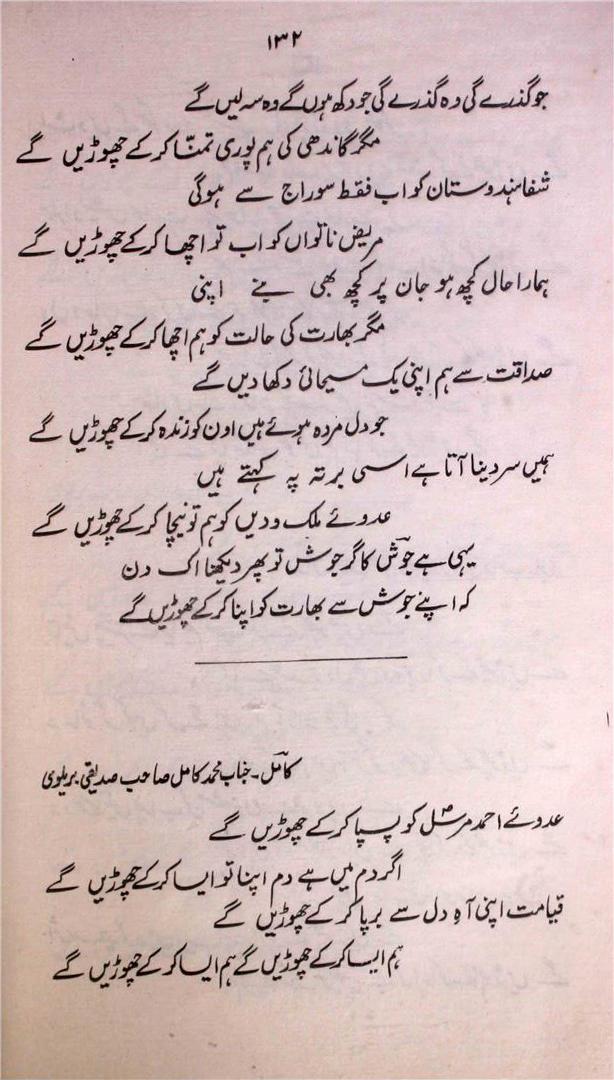 ۱۳۲
جو گذرے گی وہ گذرے گی جو دکھ ہوں گے وہ سہ لیں گے
مگر گاندھی کی ہم پوری تمنّا کر کے چھوڑیں گے
شفا ہندوستان کو اب فقط سوراج سے ہوگی
مریض ناتواں کو اب تو اچھا کر کے چھوڑیں گے
ہمارا حال کچھ ہو جان پر کچھ بھی بنے اپنی
مگر بھارت کی حالت کو ہم اچھا کر کے چھوڑیں گے
صداقت سے ہم اپنی یک مسیحائی دکھا دیں گے
جو دل مردہ ہوئے ہیں اون کو زندہ کر کے چھوڑیں گے
ہمیں سر دینا آتا ہے اسی برتہ پہ کہتے ہیں
عدوئے ملک و دیں کو ہم تو نیچا کر کے چھوڑیں گے
یہی ہے جوش کا گر جوش تو پھر دیکھنا اک دن
کہ اپنے جوش سے بھارت کو اپنا کر کے چھوڑیں گے
کامل۔ جناب محمد کامل صاحب صدیقی بریلوی
عدوئے احمد مرسلؐ کو پسپا کر کے چھوڑیں گے
اگر دم میں ہے دم اپنا تو ایسا کر کے چھوڑیں گے
قیامت اپنی آہِ دل سے برپا کر کے چھوڑیں گے
ہم ایسا کر کے چھوڑیں گے ہم ایسا کر کے چھوڑیں گے